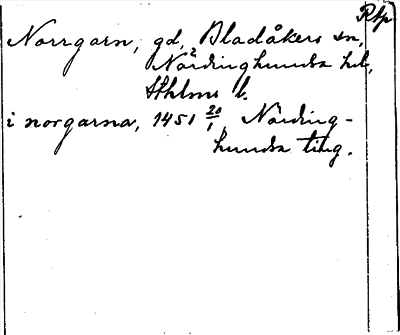 Rtp
Norrgarn, gd, Bladåkers sn,
Närdinghundra hd,
Sthlms l.
i norgarna, 1451 20/1 Närding-
hundra ting.